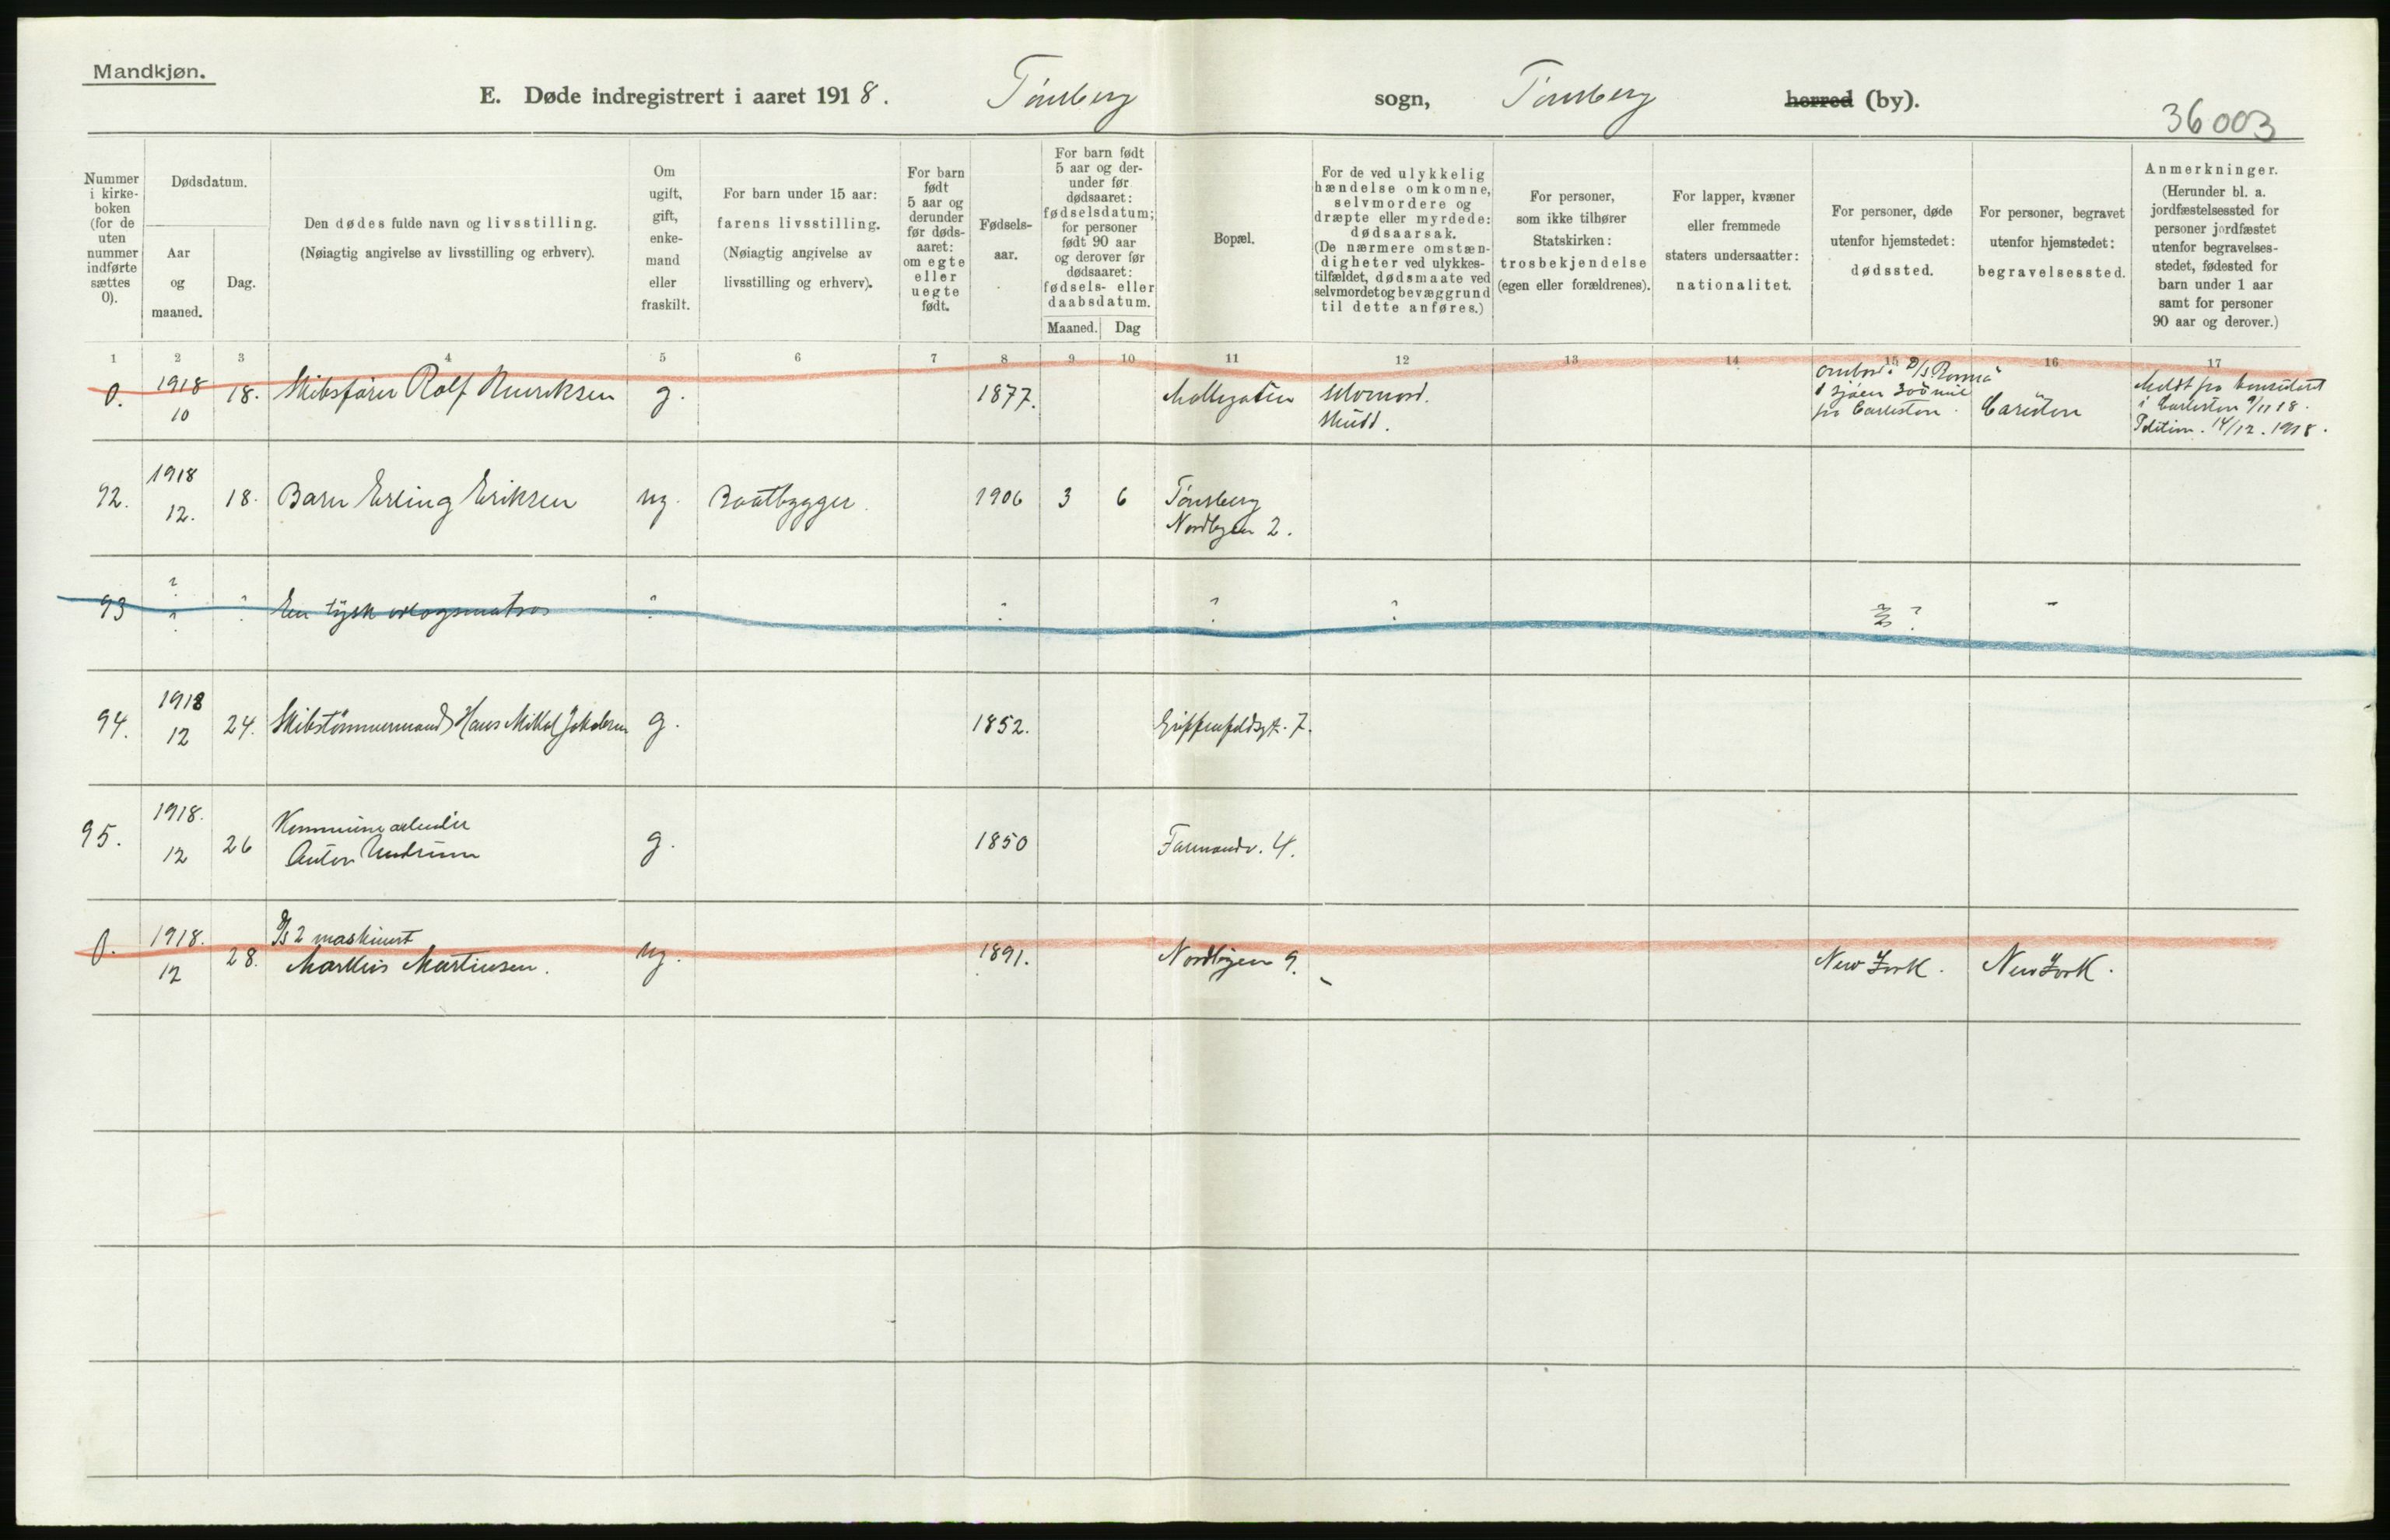 Mandkjøn.
E. Døde indregistrert i aaret 1918. Tönsberg sogn, Tönsberg herred (by).
36003
Nummer i kirke-boken (for de uten nummer indførte sættes 0).
Dødsdatum.
Aar og maaned.
Dag.
Den dødes fulde navn og livsstilling.
(Nøiagtig angivelse av livsstilling og erhverv).
Om ugift, gift, enke-mand eller fraskilt.
For barn under 15 aar: farens livsstilling.
(Nøiagtig angivelse av livsstilling og erhverv).
For barn født 5 aar og derunder før døds-aaret: om egte eller uegte født.
Fødsels-aar.
For barn født 5 aar og der-under før dødsaaret: fødselsdatum; for personer født 90 aar og derover før dødsaaret: fødsels- eller daabsdatum.
Maaned. Dag
Bopæl.
For de ved ulykkelig hændelse omkomne, selvmordere og dræpte eller myrdede: dødsaarsak.
(De nærmere omstæn-digheter ved ulykkes-tilfældet, dødsmaate ved selvmordet og bevæggrund til dette anføres.)
For personer, som ikke tilhører Statskirken: trosbekjendelse (egen eller forældrenes).
For lapper, kvæner eller fremmede staters undersaatter: nationalitet.
For personer, døde utenfor hjemstedet: dødssted.
For personer, begravet utenfor hjemstedet: begravelsessted.
Anmerkninger.
(Herunder bl. a. jordfæstelsessted for personer jordfæstet utenfor begravelses-stedet, fødested for barn under 1 aar samt for personer 90 aar og derover.)
1 2 3 4 5 6 7 8 9 10 11 12 13 14 15 16 17
0. 1918 10 18. Skibsfører Rolf Henriksen g. 1877. Møllegaten Selvmord. Skudd. ombord i D/S
i sjøen 300 mil
fra Carleston. Meldt fra konsulatet
i Carleston 9/11 18.
14/12. 1918.
92. 1918 12. 18. Barn Erling Eriksen ug. Baatbygger. 1906 3 6 Tönsberg
Nordbyen 2.
93 ? ? ? En tysk orlogsmatros ? ? ? ? ? -
94. 1918 12 24. Skibstömmermand Hans Mikkel Jakobsen g. 1852. Griffenfeldsgt. 7.
95. 1918. 12 26 Kommunearbeider
Anton Undrum g. 1850 Farmandv. 4.
0. 1918. 12 28. 2 maskinist
Markus Martinsen. ug. 1891. Nordbyen 9. New York. New York.